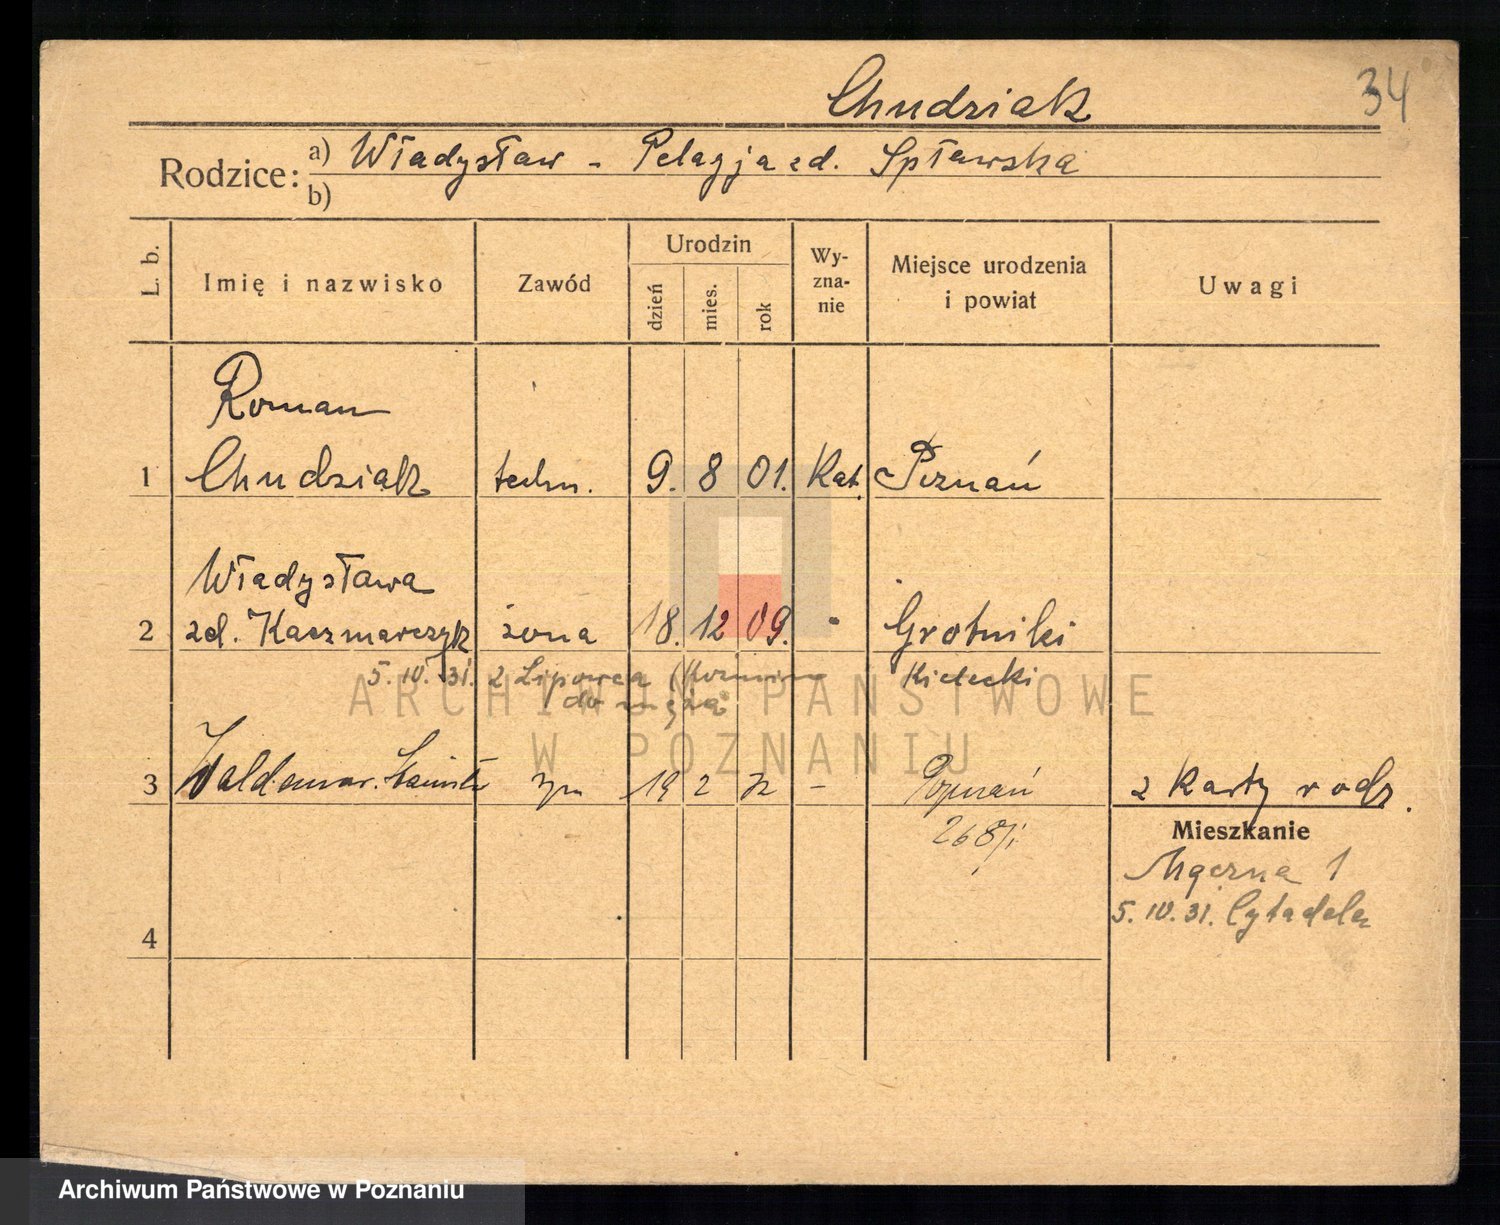 Chudziak
34
Rodzice: a) Władysław - Pelagja zd. Spławska
b)
L. b.
Imię i nazwisko
Zawód
Urodzin
dzień
mies.
rok
Wy-
zna-
nie
Miejsce urodzenia
i powiat
Uwagi
Roman
1 Chudziak techn. 9. 8 01. Kat. Poznań
Władysława
2 zd. Kaczmarczyk żona 18. 12 09. " Grotniki
5. IV. 31. z Lipowca do męża Kielecki
3 Waldemar. 19 2 32 - Poznań
z karty rodz.
Mieszkanie
268/i
Mączna 1
5. IV. 31. Cytadela
4
ARCHIWUM PAŃSTWOWE
W POZNANIU
Archiwum Państwowe w Poznaniu